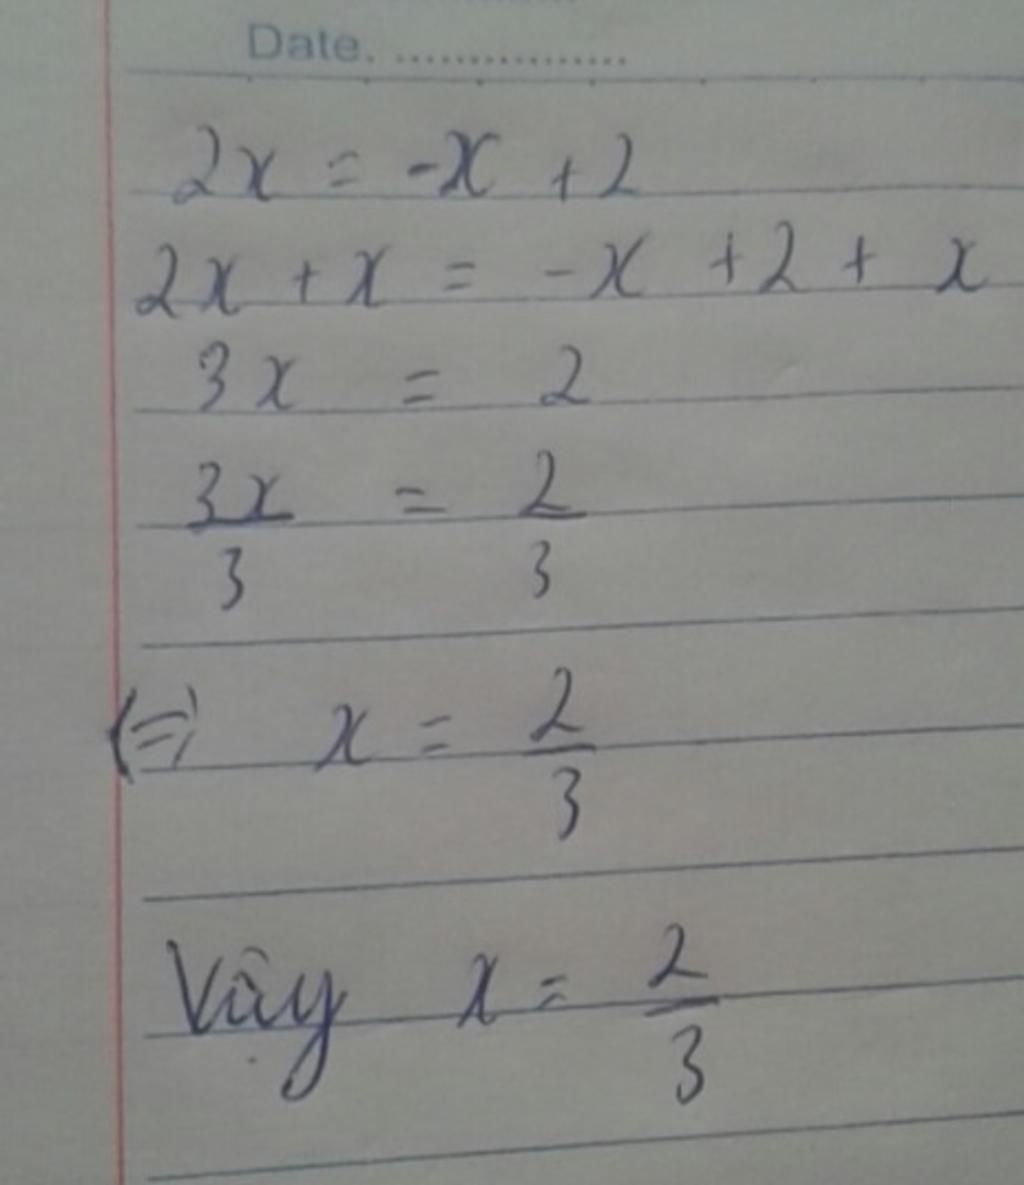 Date. ................
2x = -x + 2
2x + x = -x + 2 + x
3x = 2
3x/3 = 2/3
(=) x = 2/3
Vậy x = 2/3